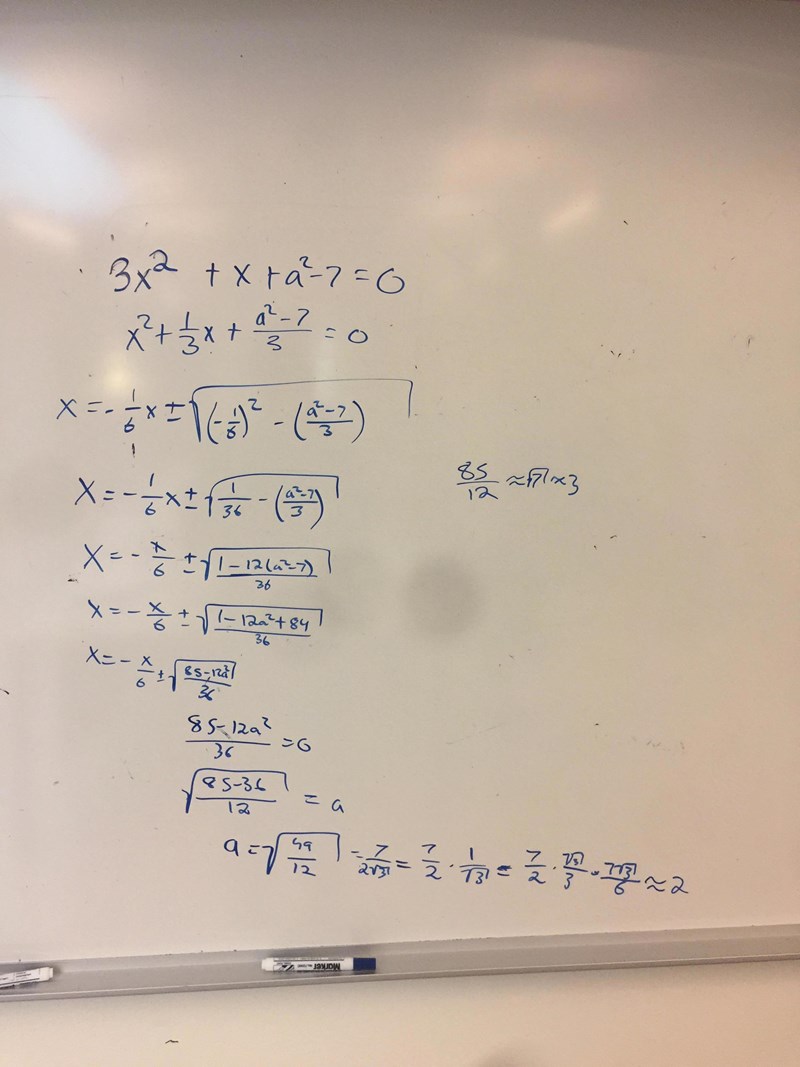 3x² + x + a² - 7 = 0
x² + 1/3 x + (a² - 7)/3 = 0
x = - 1/6 x ± √((-1/6)² - ((a² - 7)/3))
x = - 1/6 x ± √(1/36 - ((a² - 7)/3))
85/12 ≈ √7 × 3
x = - x/6 ± √((1 - 12(a² - 7))/36)
x = - x/6 ± √((1 - 12a² + 84)/36)
x = - x/6 ± √((85 - 12a²)/36)
(85 - 12a²)/36 = 0
√((85 - 36)/12) = a
a = √(49/12) = 7/(2√3) = 7/2 · 1/√3 = 7/2 · √3/3 = 7√3/6 ≈ 2
Marker